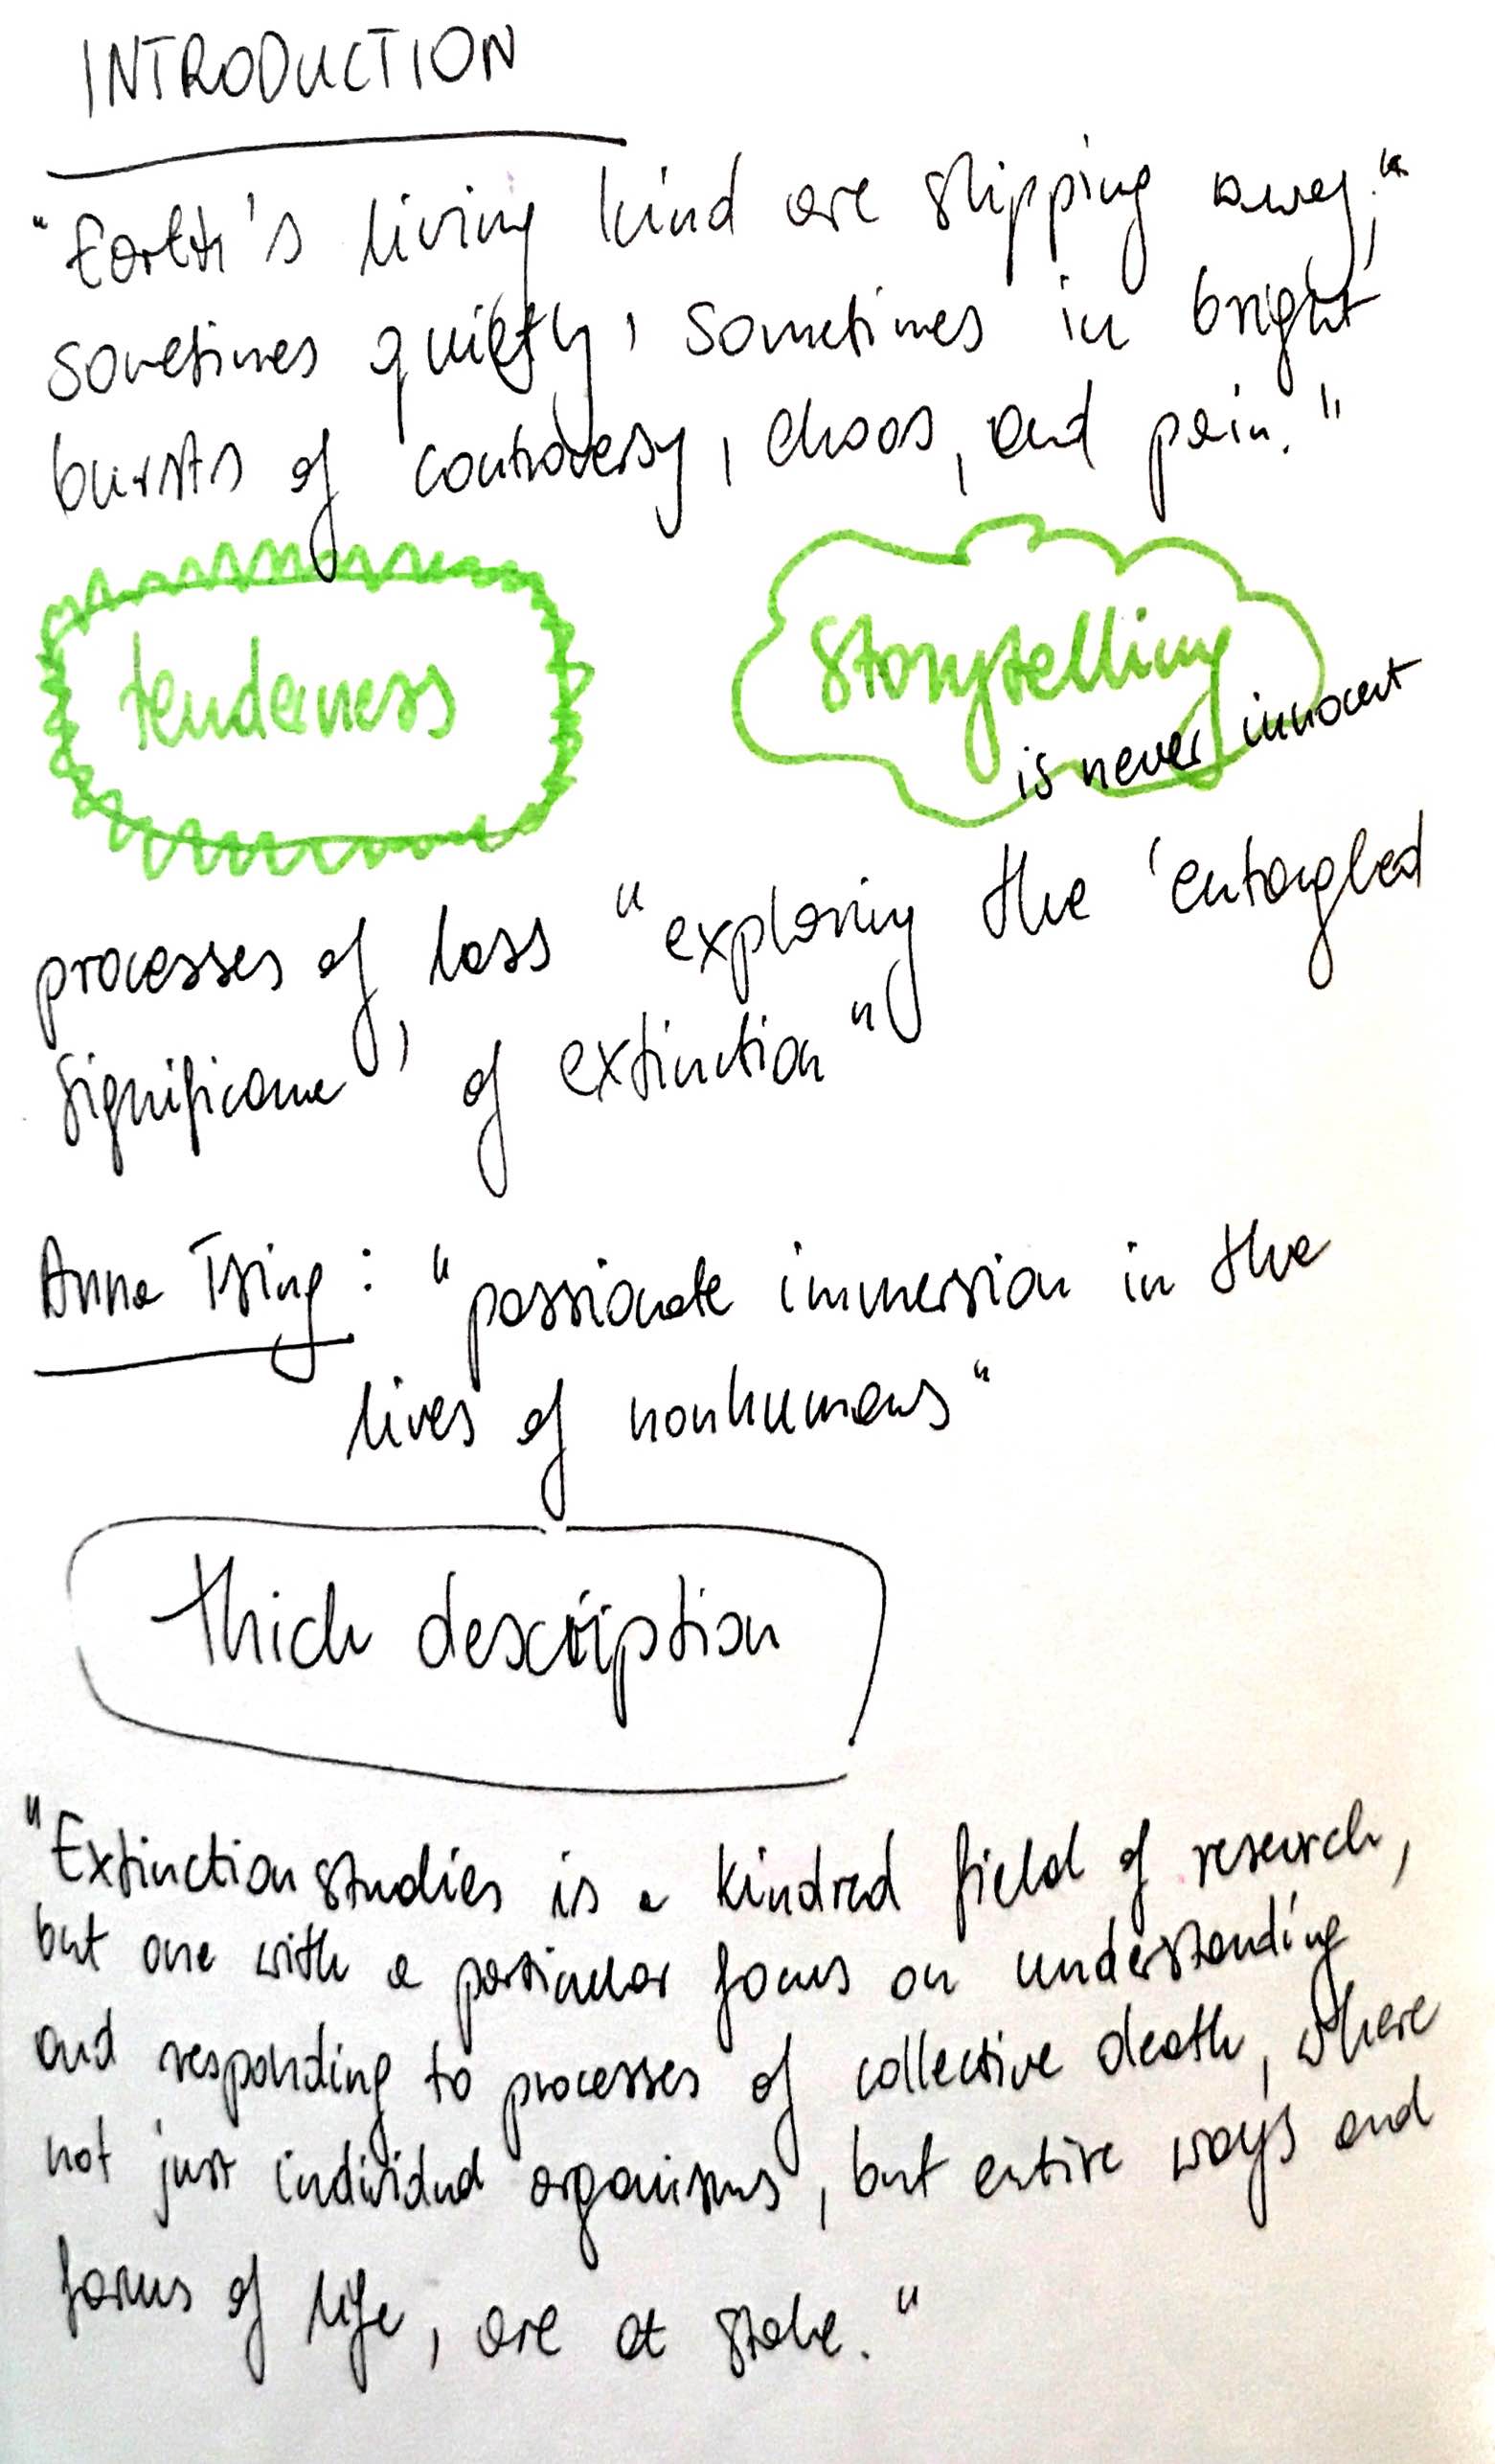 INTRODUCTION
"Earth's living kind are slipping away,"
sometimes quietly, sometimes in bright
bursts of controversy, chaos, and pain."
tenderness
Storytelling
is never innocent
processes of loss "exploring the 'entangled
significance' of extinction"
Anna Tsing: "passionate immersion in the
lives of nonhumans"
thick description
"Extinction studies is a kindred field of research,
but one with a particular focus on understanding
and responding to processes of collective death, where
not just individual organisms, but entire ways and
forms of life, are at stake."